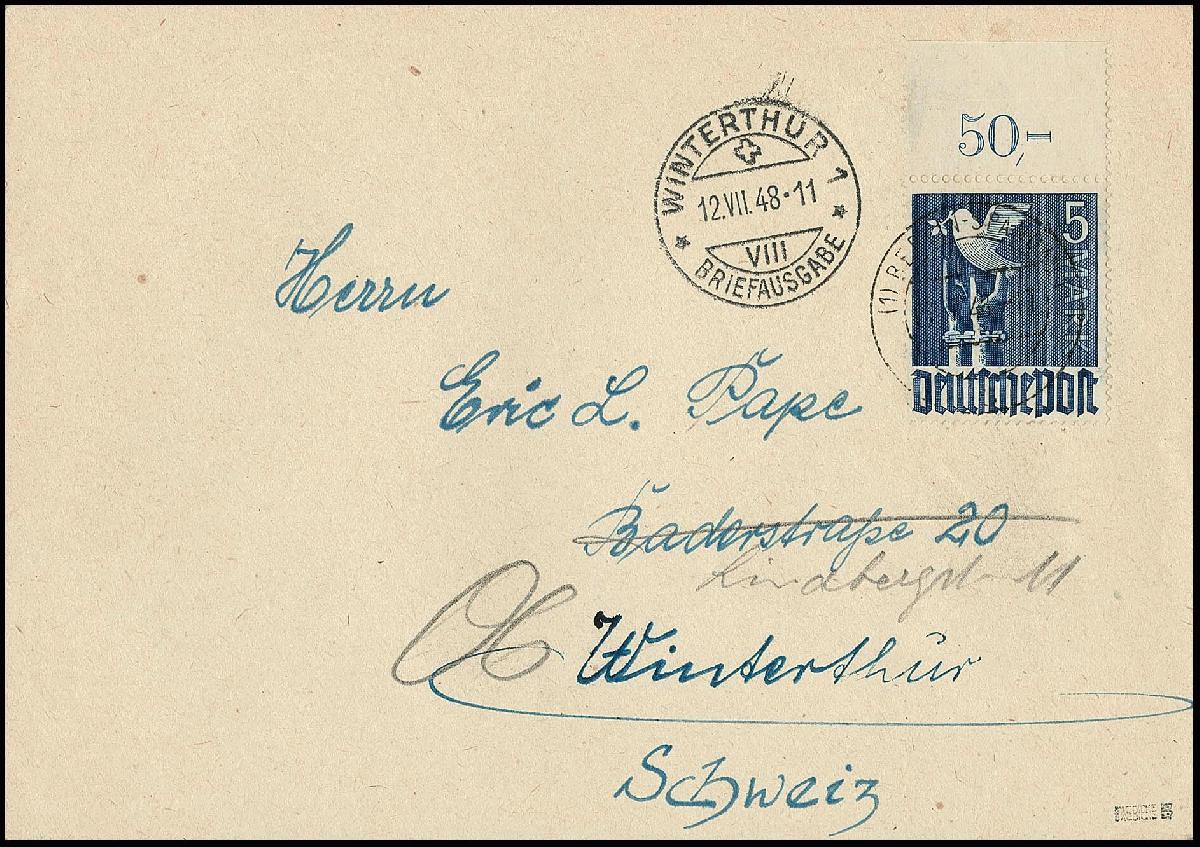 50,-
WINTERTHUR 1
12.VII.48·11
VIII
BRIEFAUSGABE
5
MARK
Deutsche Post
Herrn
Eric L. Pape
Baderstraße 20
Lindbergstr 11
Winterthur
Schweiz